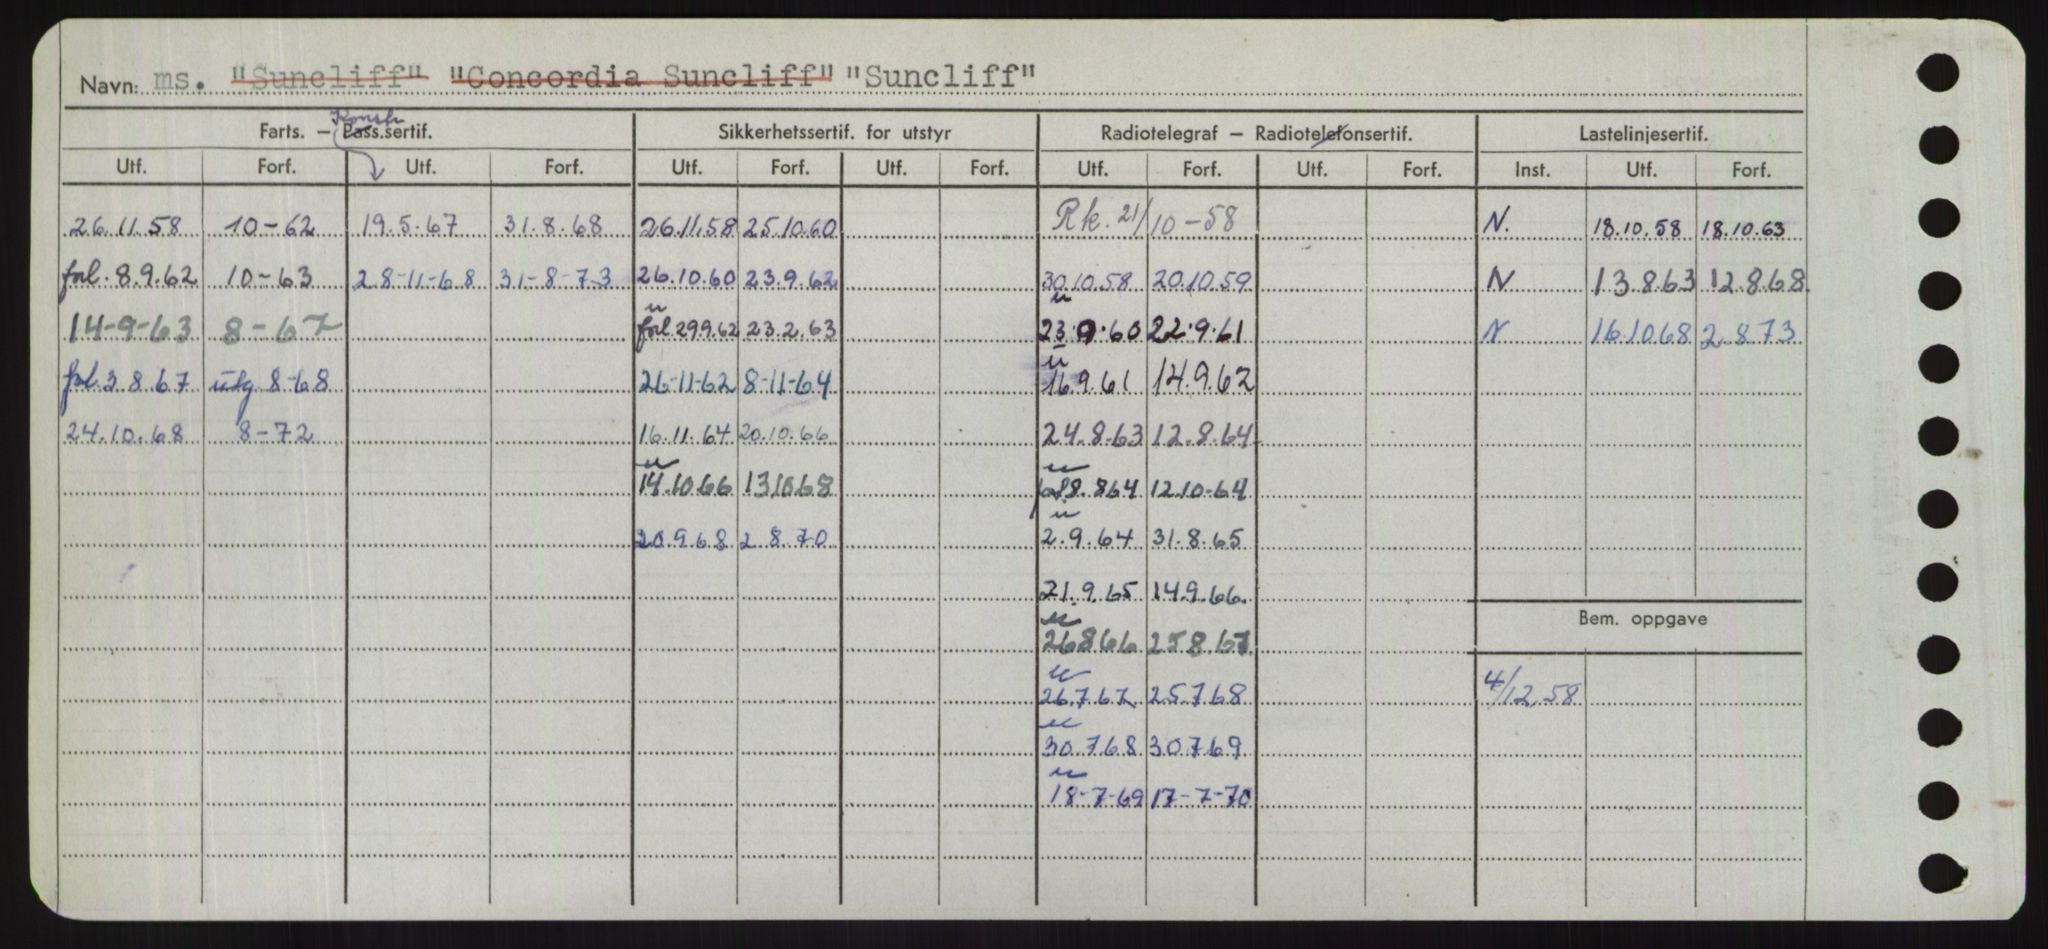 Navn: ms. "Suncliff" "Concordia Suncliff" "Suncliff"
Konstr.
Farts. – Pass.sertif. Sikkerhetssertif. for utstyr Radiotelegraf – Radiotelefonsertif. Lastelinjesertif.
Utf. Forf. Utf. Forf. Utf. Forf. Utf. Forf. Utf. Forf. Utf. Forf. Inst. Utf. Forf.
26.11.58 10-62 19.5.67 31.8.68 26.11.58 25.10.60 Rk. 21/10-58 N. 18.10.58 18.10.63
forl. 8.9.62 10-63 28-11-68 31-8-73 26.10.60 23.9.62 30.10.58 20.10.59 N 13.8.63 12.8.68
14-9-63 8-67 forl 29.9.62 23.2.63 23.9.60 22.9.61 N 16.10.68 2.8.73
forl. 3.8.67 utg 8-68 26-11-62 8-11-64 16.9.61 14.9.62
24.10.68 8-72 16.11.64 20.10.66 24.8.63 12.8.64
14.10.66 13.10.68 forl 8.8.64 12.10-64
20.9.68 2.8.70 2.9.64 31.8.65
21.9.65 14.9.66
Bem. oppgave
26.8.66 25.8.67
26.7.67 25.7.68 4/12.58
30.7.68 30.7.69
18-7-69 17-7-70